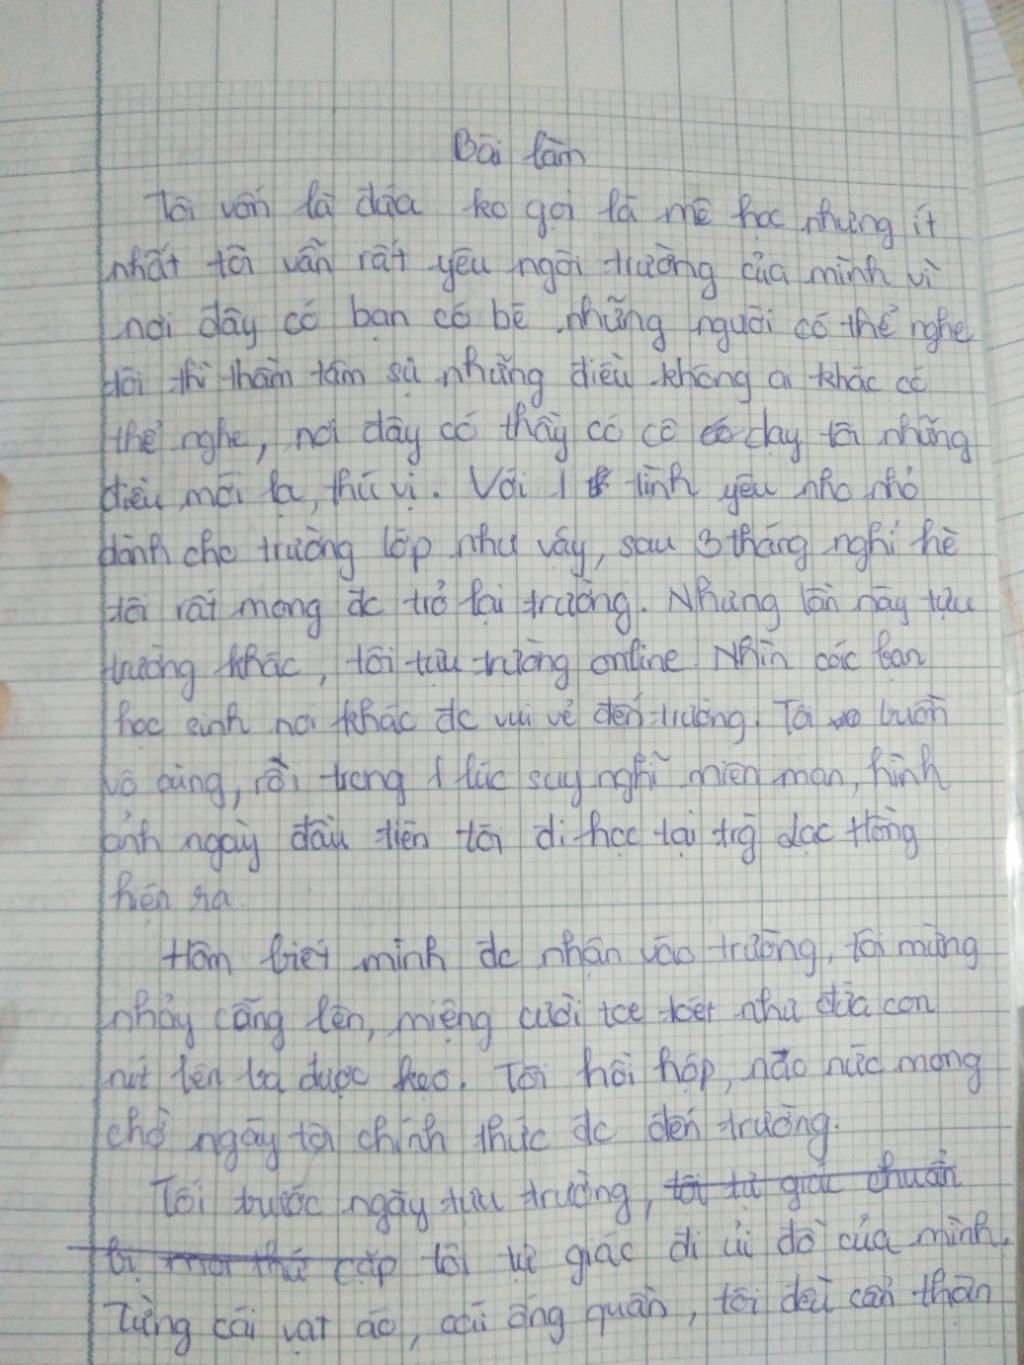 Bài làm
Tôi vốn là đứa ko gọi là mê học nhưng ít
nhất tôi vẫn rất yêu ngôi trường của mình vì
nơi đây có bạn có bè, những người có thể nghe
tôi thì thầm tâm sự những điều không ai khác có
thể nghe, nơi đây có thầy có cô dạy tôi những
điều mới lạ, thú vị. Với 1 tình yêu nho nhỏ
dành cho trường lớp như vậy, sau 3 tháng nghỉ hè
tôi rất mong đc trở lại trường. Nhưng lần này tựu
trường khác, tôi tựu trường online. Nhìn các bạn
học sinh nơi khác đc vui vẻ đến trường. Tôi buồn
vô cùng, rồi trong 1 lúc suy nghĩ miên man, hình
ảnh ngày đầu tiên tôi đi học tại trg Lạc Hồng
hiện ra.
Hôm biết mình đc nhận vào trường, tôi mừng
nhảy cẫng lên, miệng cười toe toét như đứa con
nít lên ba được kẹo. Tôi hồi hộp, náo nức mong
chờ ngày tôi chính thức đc đến trường.
Tối trước ngày tựu trường, tôi tự giác chuẩn
bị mọi thứ cặp tôi tự giác đi ủi đồ của mình.
Từng cái vạt áo, cái ống quần, tôi đều cẩn thận